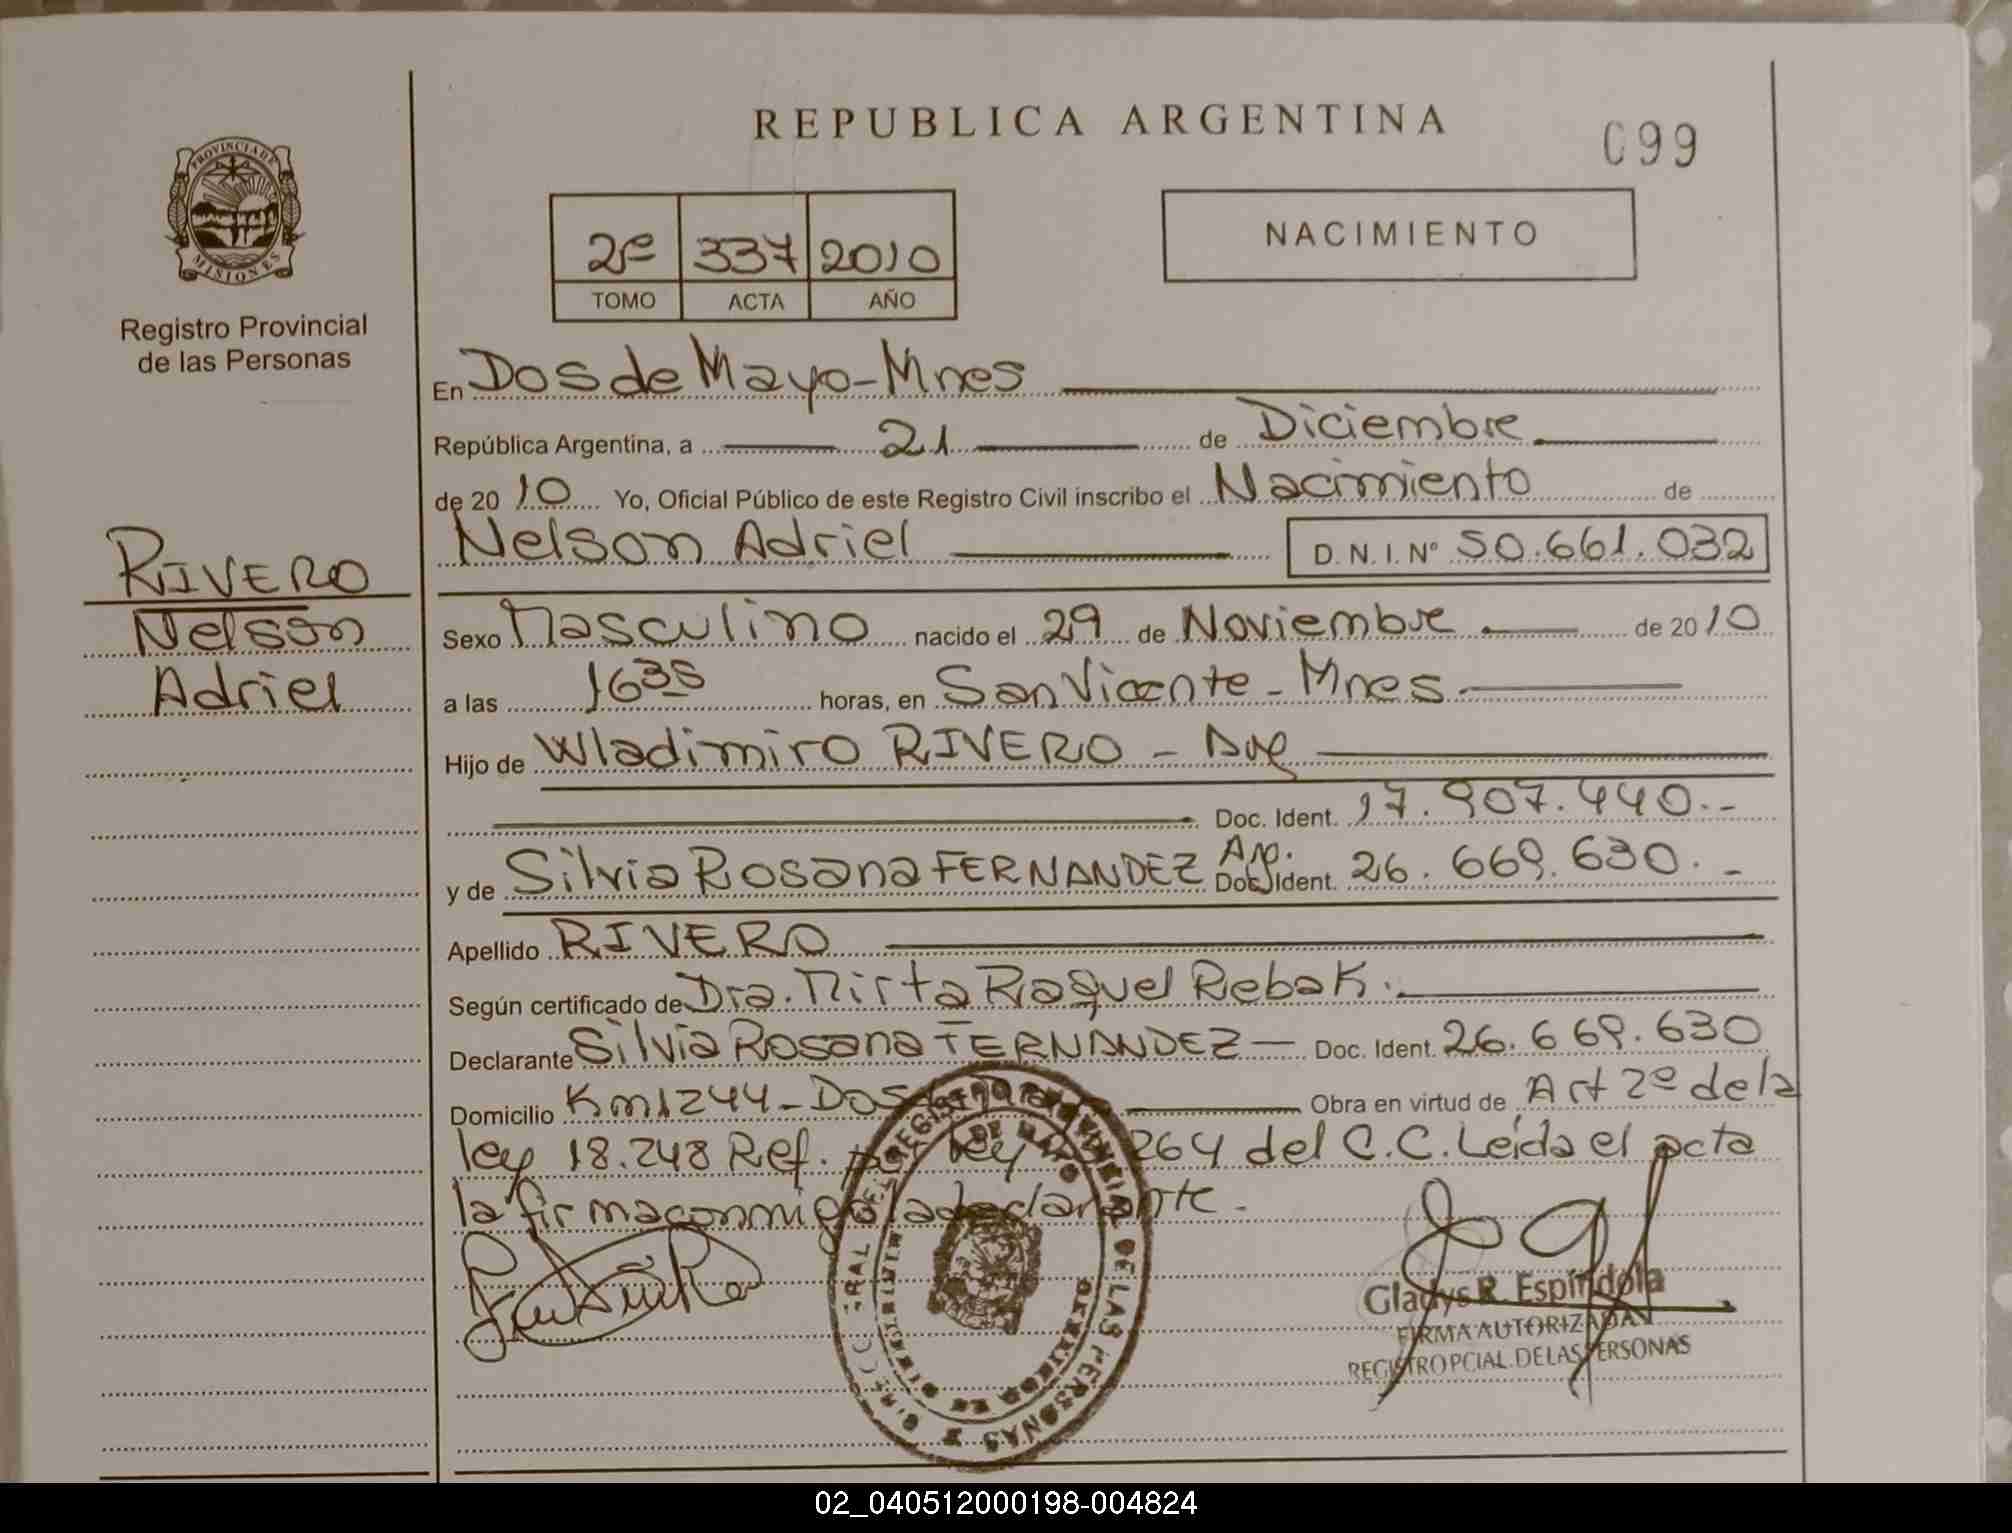 REPUBLICA ARGENTINA
099
PROVINCIA DE
MISIONES
Registro Provincial
de las Personas
2º 337 2010
TOMO ACTA AÑO
NACIMIENTO
En Dos de Mayo - Mnes
República Argentina, a 21 de Diciembre
de 2010 Yo, Oficial Público de este Registro Civil inscribo el Nacimiento de
Nelson Adriel D. N. I. Nº 50.661.032
RIVERO
Nelson
Adriel
Sexo Masculino nacido el 29 de Noviembre de 2010
a las 1635 horas, en San Vicente - Mnes
Hijo de Wladimiro RIVERO -
Doc. Ident. 17.907.440.-
y de Silvia Rosana FERNANDEZ Doc. Ident. 26.669.630.-
Apellido RIVERO
Según certificado de Dra. Mirta Raquel Rebak.
Declarante Silvia Rosana FERNANDEZ - Doc. Ident. 26.669.630
Domicilio Km 1244 - Dos Obra en virtud de Art 2º de la
ley 18.248 Ref. por ley 264 del C.C. Leída el acta
la firma conmigo la declarante.
Gladys R. Espíndola
FIRMA AUTORIZADA
REGISTRO PCIAL. DE LAS PERSONAS
02_040512000198-004824